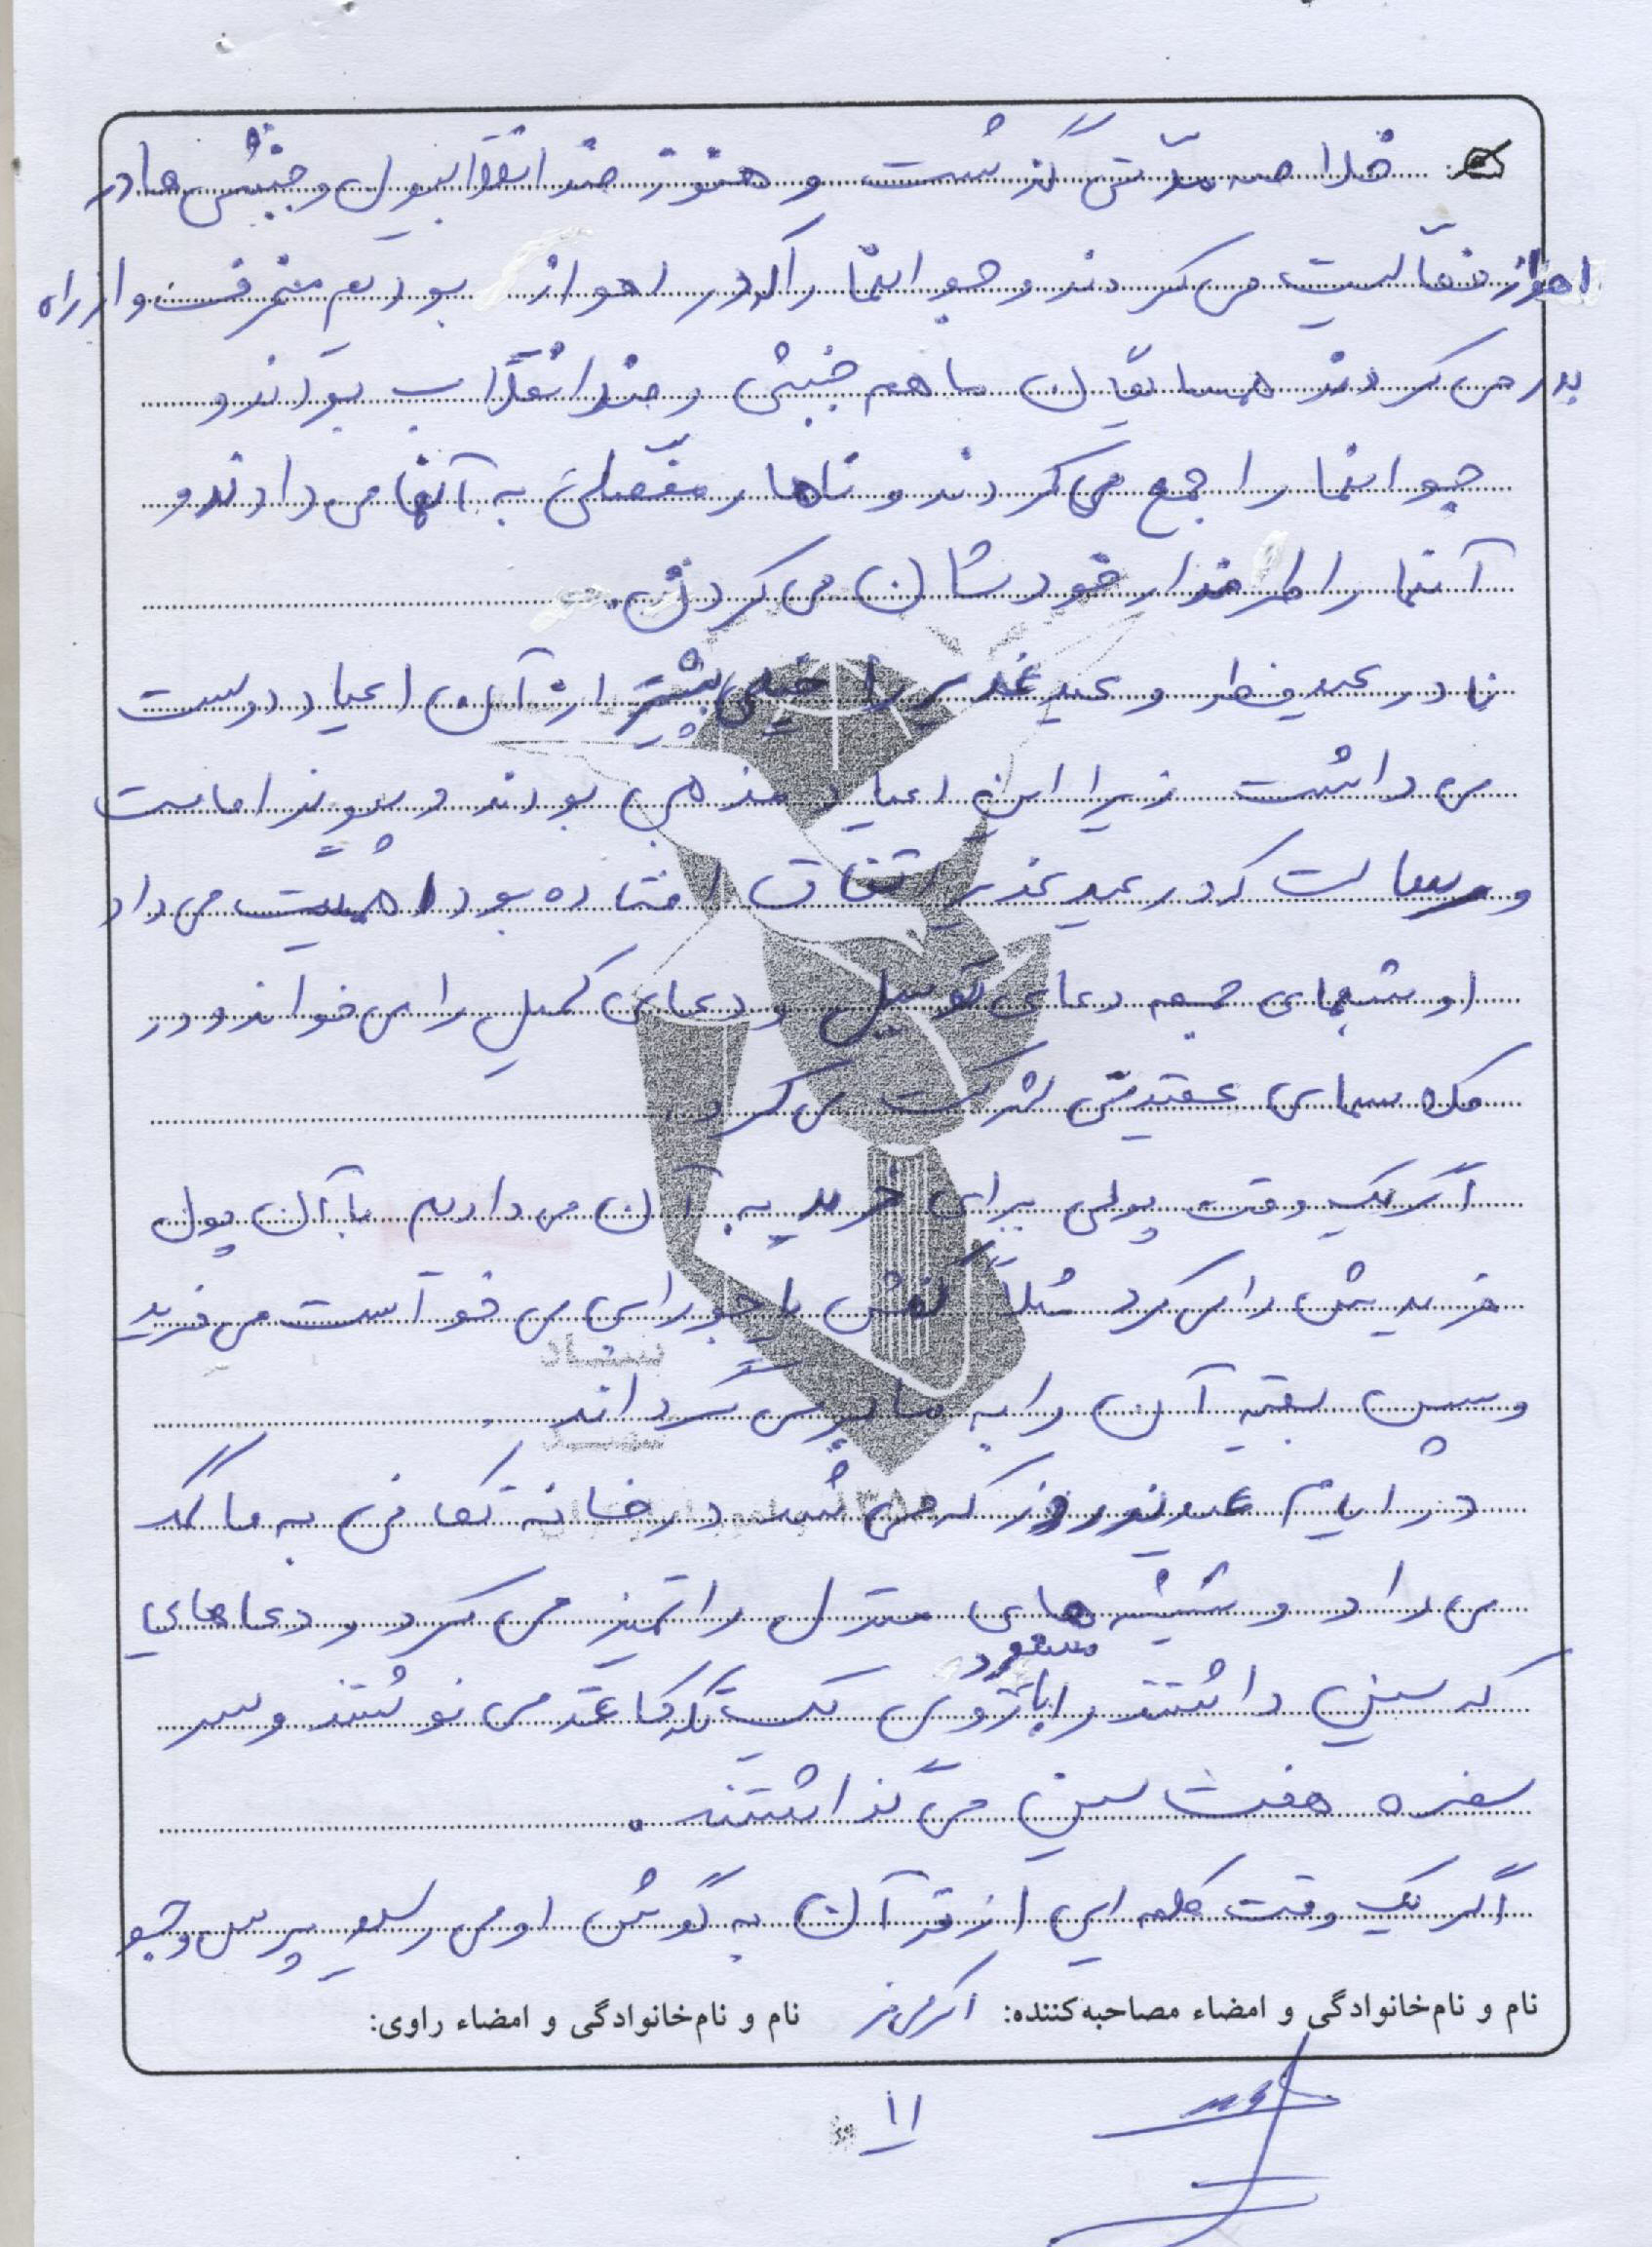 خلاصه مدّتی گذشت و هنوز ضد انقلابیون و جنبشی ها در
اهواز فعّالیت می کردند و جوانها را که در اهواز بودیم منحرف و از راه
بدر می کردند همسایمان ما هم جنبشی و ضد انقلاب بودند و
جوانها را جمع می کردند و ناهار مفصلی به آنها می دادند و
آنها را طرفدار خودشان می کردند.
نادر عید فطر و عید غدیر را خیلی بیشتر از آن اعیاد دوست
می داشت زیرا این اعیاد مذهبی بودند و پیوند امامت
و رسالت که در عید غدیر اتفاق افتاده بود اهمیت می داد
او شبهای جمعه دعای توسل و دعای کمیل را می خواند و در
کلاسهای عقیدتی شرکت می کرد.
اگر یک وقت پولی برای خرید به آن می دادیم با آن پول
خریدش را می کرد مثلاً کفش یا جورابی می خواست می خرید
و سپس بقیه آن را به ما برمی گرداند.
در ایام عید نوروز که می شد در خانه تکانی به ما کمک
می داد و شیشه های منزل را تمیز می کرد و دعاهای
مسعود
که سین داشتند را با روی یک تکه کاغذ می نوشتند و سر
سفره هفت سین می گذاشتند.
اگر یک وقت کلمه ای از قرآن به گوش او می رسید پرس و جو
نام و نام‌خانوادگی و امضاء مصاحبه‌کننده: نام و نام‌خانوادگی و امضاء راوی:
۱۱